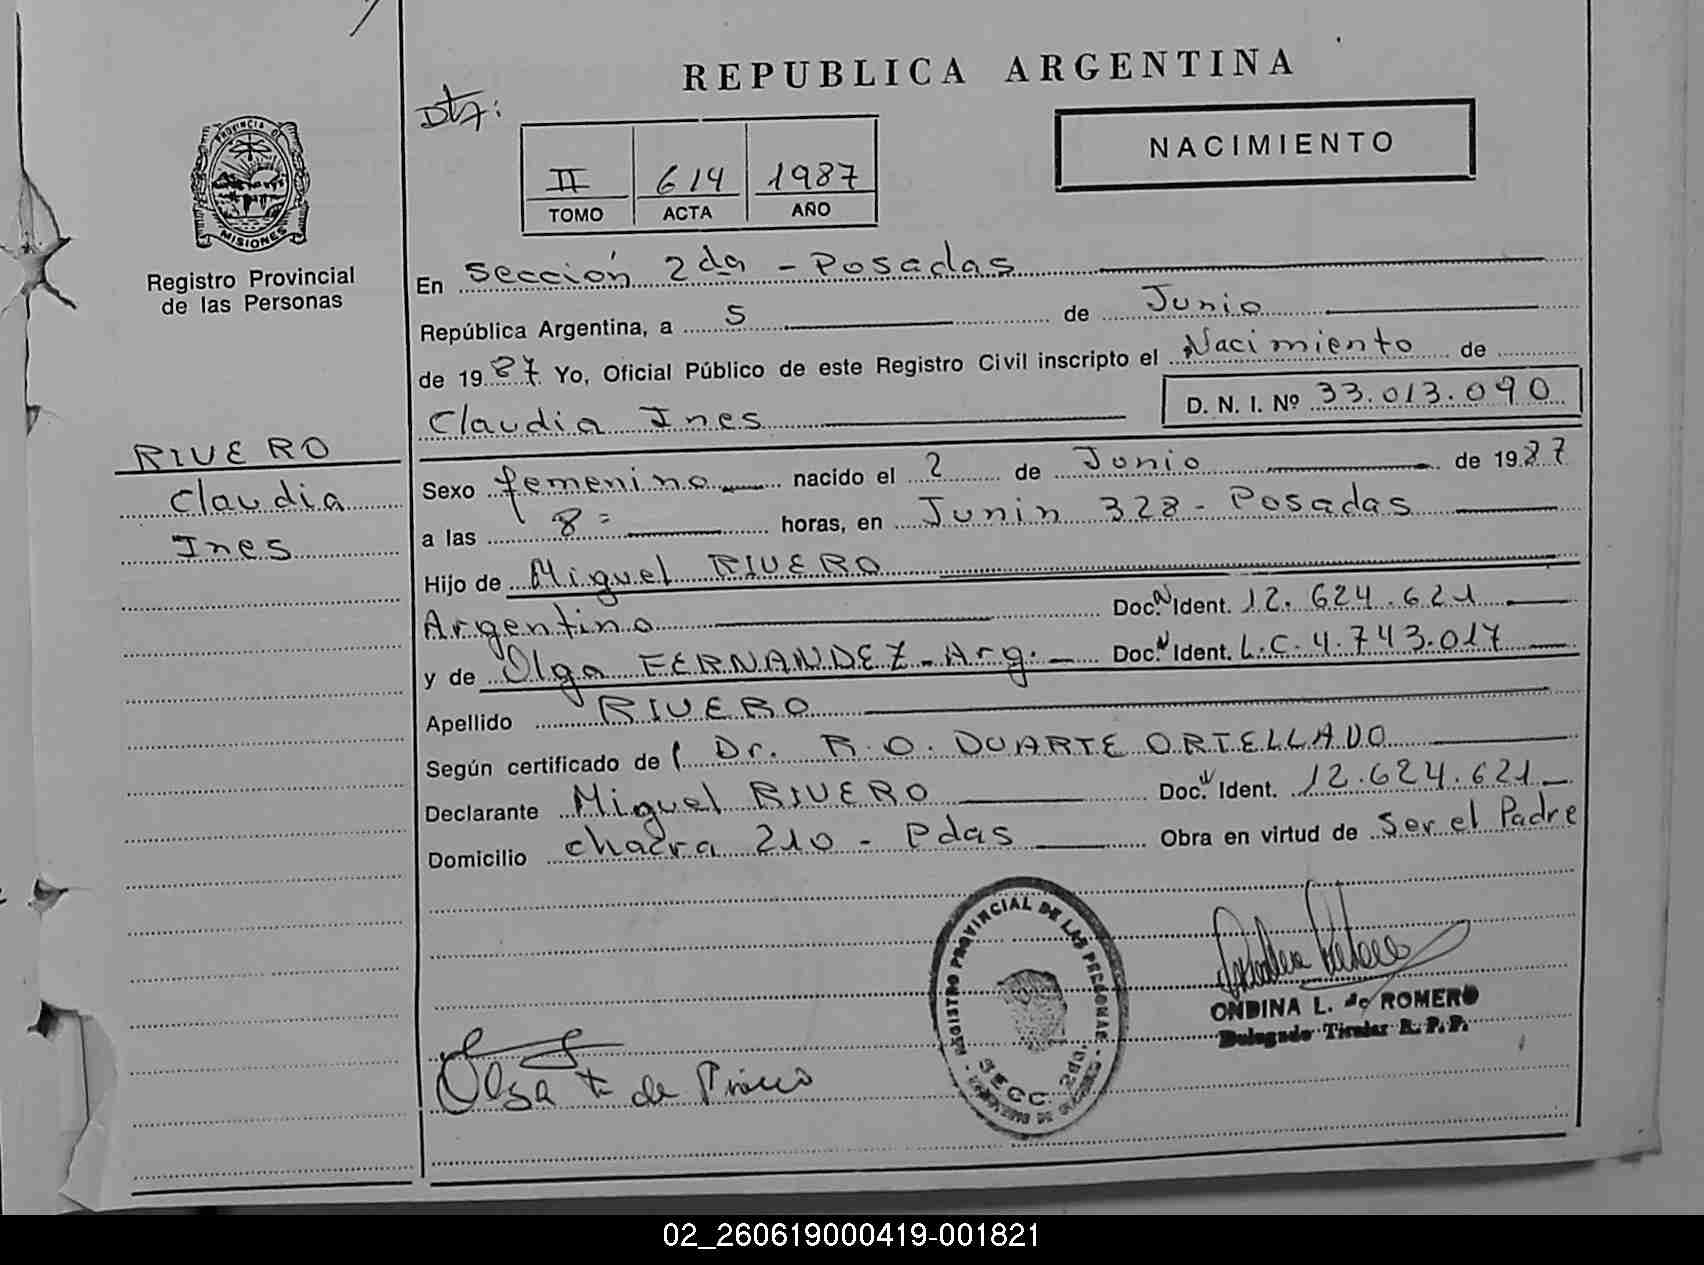 REPUBLICA ARGENTINA
NACIMIENTO
II 614 1987
TOMO ACTA AÑO
PROVINCIA DE
MISIONES
Registro Provincial
de las Personas
RIVERO
Claudia
Ines
En Sección 2da - Posadas
República Argentina, a 5 de Junio
de 1987 Yo, Oficial Público de este Registro Civil inscripto el Nacimiento de
Claudia Ines D. N. I. Nº 33.013.090
Sexo femenino nacido el 2 de Junio de 1987
a las 8= horas, en Junin 328 - Posadas
Hijo de Miguel RIVERO
Argentino Doc. N Ident. 12.624.621
y de Olga FERNANDEZ - Arg. Doc. N Ident. L.C. 4.743.017
Apellido RIVERO
Según certificado de Dr. R.O. DUARTE ORTELLADO
Declarante Miguel RIVERO Doc. N Ident. 12.624.621
Domicilio chacra 210 - Pdas Obra en virtud de Ser el Padre
REGISTRO PROVINCIAL DE LAS PERSONAS
SECC. 2da.
ONDINA L. de ROMERO
Delegado Titular R. P. P.
Olga F de
02_260619000419-001821